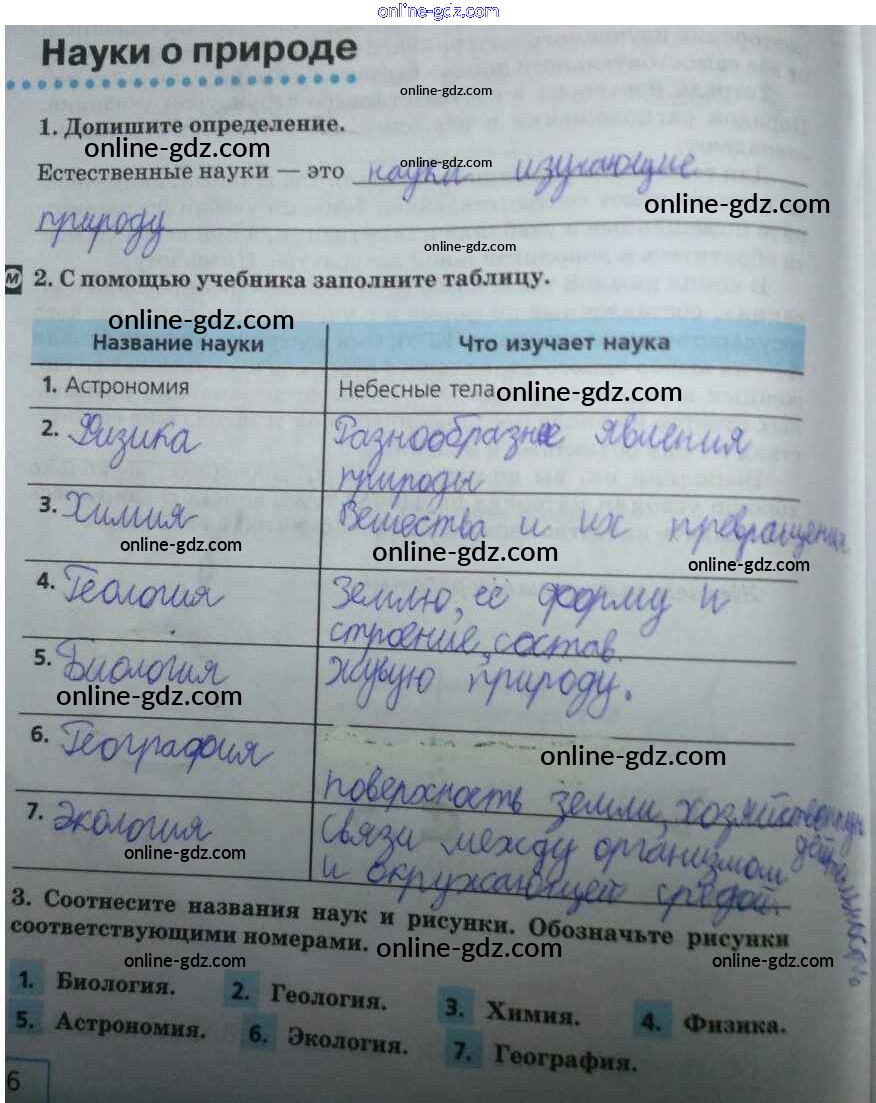 online-gdz.com
Науки о природе
online-gdz.com
1. Допишите определение.
online-gdz.com
online-gdz.com
Естественные науки — это науки изучающие
online-gdz.com
природу
online-gdz.com
М 2. С помощью учебника заполните таблицу.
online-gdz.com
Название науки Что изучает наука
1. Астрономия Небесные тела
online-gdz.com
2. Физика Разнообразне явления
природы
3. Химия Вещества и их превращения
online-gdz.com online-gdz.com online-gdz.com
4. Геология Землю, её форму и
строение, состав.
5. Биология живую природу.
online-gdz.com
6. География
online-gdz.com
поверхность земли, хозяйственную
деятельность
7. Экология связи между организмом
online-gdz.com
и окружающей средой.
online-gdz.com
3. Соотнесите названия наук и рисунки. Обозначьте рисунки
соответствующими номерами.
online-gdz.com
online-gdz.com online-gdz.com
1. Биология. 2. Геология. 3. Химия. 4. Физика.
5. Астрономия. 6. Экология. 7. География.
6